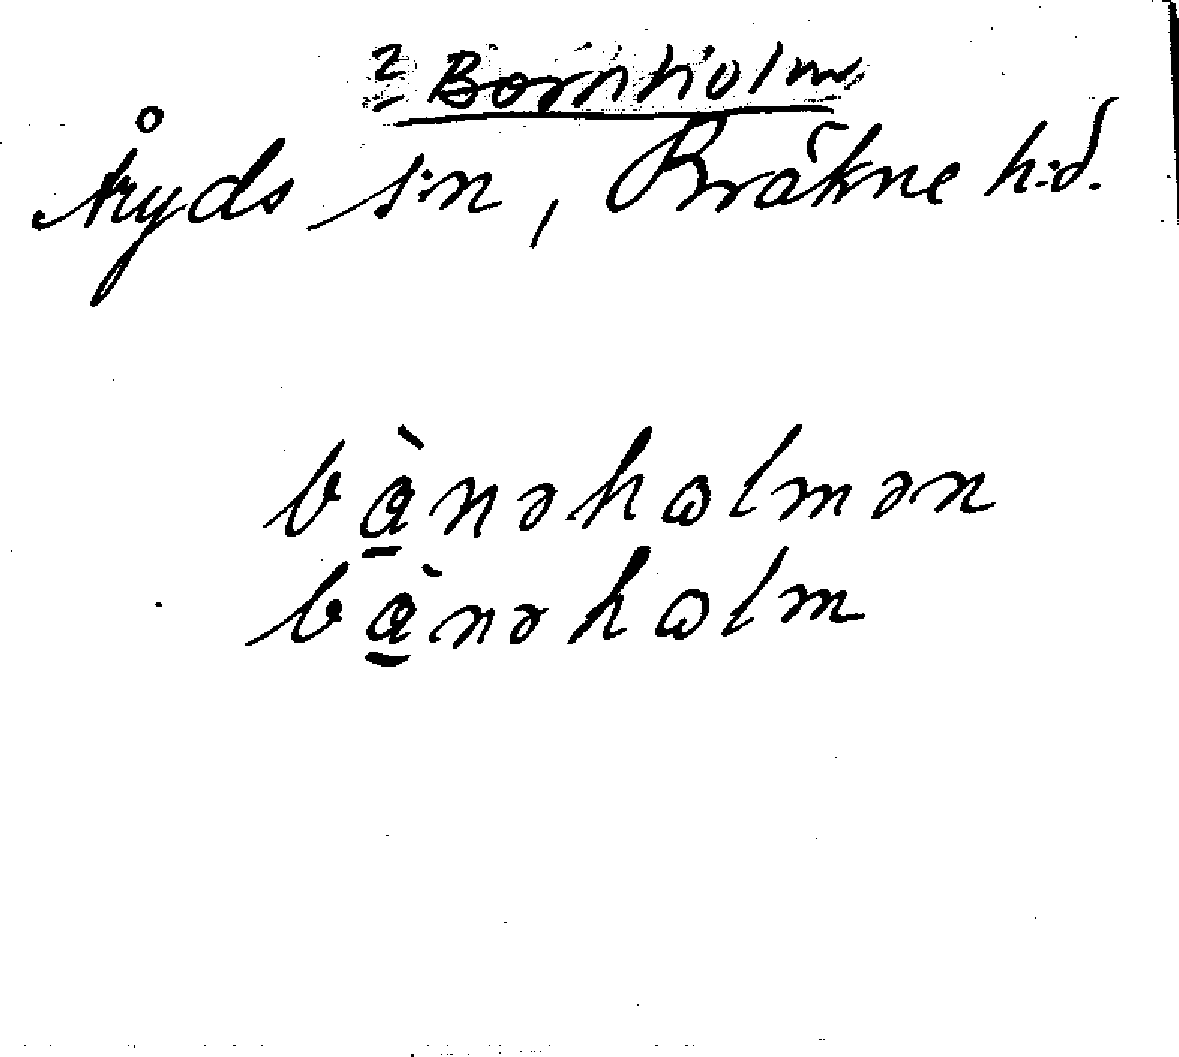 2 Bornholm
Åryds s:n, Bräkne h:d.
bànəhωlmən
bànəhωlm